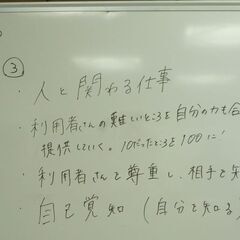 ③
・人と関わる仕事
・利用者さんの難しいところを自分の力も合
提供していく。10だったところを100に!
・利用者さんを尊重し、相手を知
・自己覚知（自分を知る